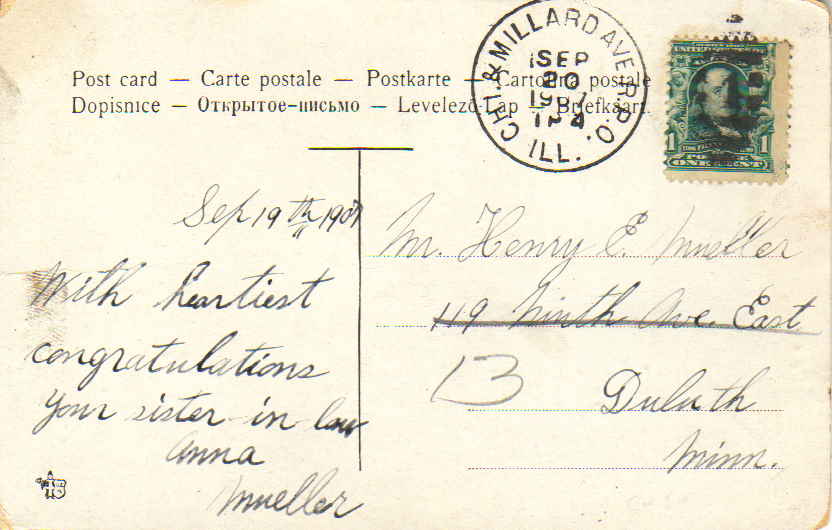 Post card — Carte postale — Postkarte — Cartolina postale
Dopisnice — Открытое-письмо — Levelező-Lap — Briefkaart.
CHI. & MILLARD AVE. R.P.O.
ILL.
SEP
20
1907
1
1
ONE CENT
Sep 19th 1907
With heartiest
congratulations
Your sister-in-law
Anna
Mueller
Mr. Henry E. Mueller
119 Ninth Ave. East
13
Duluth
Minn.